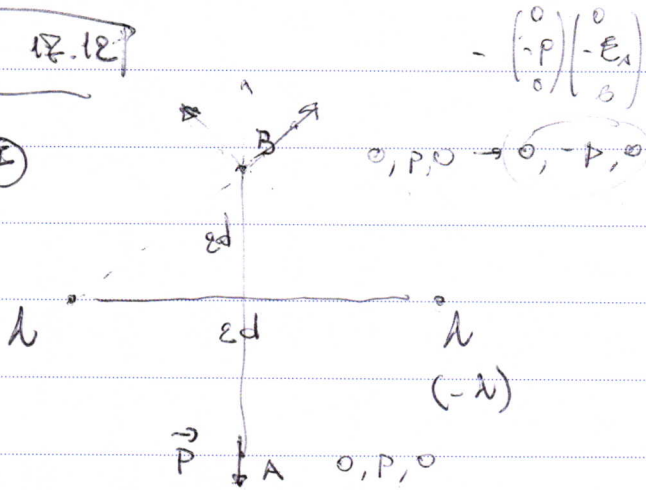 17.12
- (0 -P 0) (0 -E₁ 0)
B
0, P, 0 → 0, -P, 0
2d
λ 2d λ
(-λ)
P⃗ A 0, P, 0